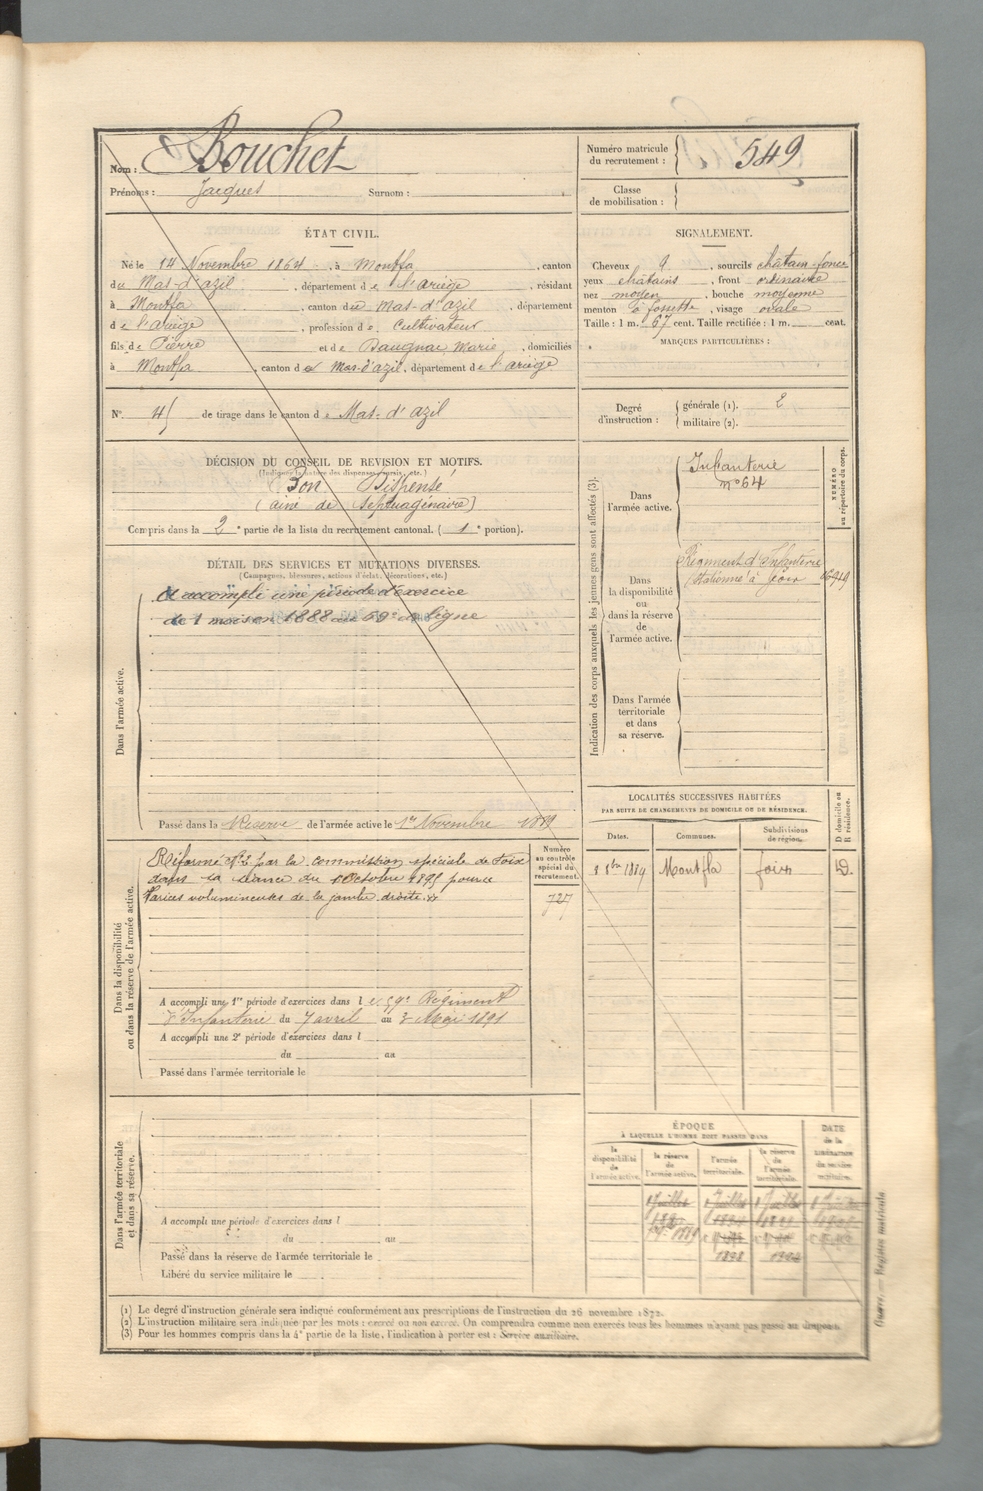 Nom : Bouchet
Prénoms : Jacques Surnom :
Numéro matricule
du recrutement : 549
Classe
de mobilisation :
ÉTAT CIVIL.
Né le 14 Novembre 1864, à Montfa, canton
du Mas-d'azil, département de l'Ariège, résidant
à Montfa, canton du Mas-d'azil, département
de l'ariège, profession de Cultivateur
fils de Pierre et de Baugnac Marie, domiciliés
à Montfa, canton de Mas-d'azil, département de l'ariège
N° de tirage dans le canton de Mas-d'azil
SIGNALEMENT.
Cheveux , sourcils châtain-foncé
yeux châtains, front ordinaire
nez moyen, bouche moyenne
menton à fossette, visage ovale
Taille : 1 m. 67 cent. Taille rectifiée : 1 m. cent.
MARQUES PARTICULIÈRES :
Degré
d'instruction :
générale (1). 2
militaire (2).
DÉCISION DU CONSEIL DE REVISION ET MOTIFS.
(Indiquer la nature des dispenses, sursis, etc.)
Bon Dispensé
(ainé de Septuagénaire)
Compris dans la 2e partie de la liste du recrutement cantonal. (1e portion).
DÉTAIL DES SERVICES ET MUTATIONS DIVERSES.
(Campagnes, blessures, actions d'éclat, décorations, etc.)
Dans l'armée active.
A accompli une période d'exercice
de 1 mois en 1888 au 59e de ligne
Passé dans la Réserve de l'armée active le 1er Novembre 1889
Dans la disponibilité
ou dans la réserve de l'armée active.
Réformé n°2 par la commission spéciale de Foix
dans sa séance du Octobre 1895 pour
Varices volumineuses de la jambe droite.
Numéro
au contrôle
spécial du
recrutement.
727
A accompli une 1re période d'exercices dans le 59e Régiment
d'Infanterie du 7 avril au 4 Mai 1891
A accompli une 2e période d'exercices dans l
du au
Passé dans l'armée territoriale le
Dans l'armée territoriale
et dans sa réserve.
A accompli une période d'exercices dans l
du au
Passé dans la réserve de l'armée territoriale le
Libéré du service militaire le
Indication des corps auxquels les jeunes gens sont affectés (3).
NUMÉRO
au répertoire du corps.
Dans
l'armée active.
Infanterie
n°64
Dans
la disponibilité
ou
dans la réserve
de
l'armée active.
Régiment d'Infanterie
stationné à Foix
Dans l'armée
territoriale
et dans
sa réserve.
LOCALITÉS SUCCESSIVES HABITÉES
PAR SUITE DE CHANGEMENTS DE DOMICILE OU DE RÉSIDENCE.
D domicile ou
R résidence.
Dates. Communes. Subdivisions
de région.
8bre 1889 Montfa foix D.
ÉPOQUE
À LAQUELLE L'HOMME DOIT PASSER DANS
DATE
de la
LIBÉRATION
du service
militaire.
la
disponibilité
de
l'armée active.
la réserve
de
l'armée active.
l'armée
territoriale.
la réserve
de
l'armée
territoriale.
1 Juillet 1 Juillet 1 Juillet
1889
1898
(1) Le degré d'instruction générale sera indiqué conformément aux prescriptions de l'instruction du 26 novembre 1872.
(2) L'instruction militaire sera indiquée par les mots : exercé ou non exercé. On comprendra comme non exercés tous les hommes n'ayant pas passé au drapeau.
(3) Pour les hommes compris dans la 4e partie de la liste, l'indication à porter est : Service auxiliaire.